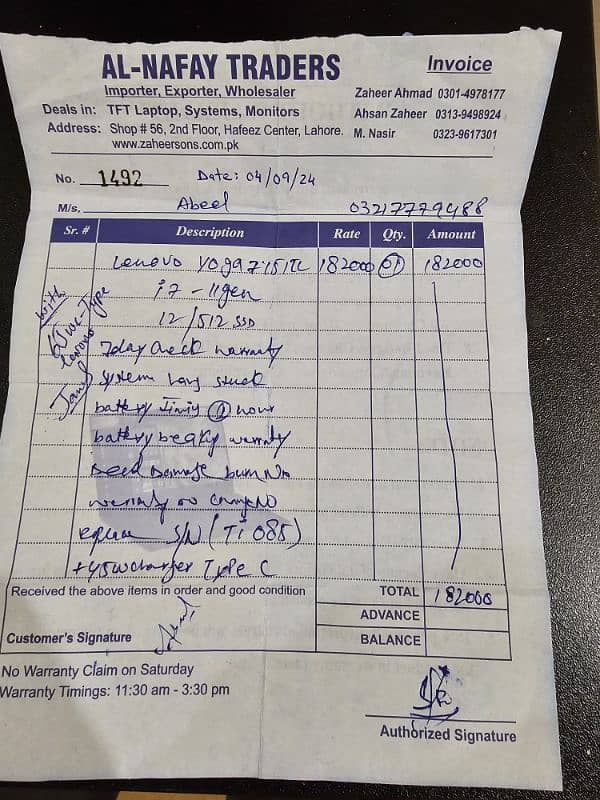 AL-NAFAY TRADERS
Invoice
Importer, Exporter, Wholesaler
Zaheer Ahmad 0301-4978177
Deals in: TFT Laptop, Systems, Monitors
Ahsan Zaheer 0313-9498924
Address: Shop # 56, 2nd Floor, Hafeez Center, Lahore.
M. Nasir 0323-9617301
www.zaheersons.com.pk
No. 1492 Date: 04/09/24
M/s. Abeel 03217779488
Sr. # Description Rate Qty. Amount
Lenovo Yoga 7 15ITL 182000 01 182000
i7 - 11gen
12/512 SSD
7day Check warranty
System hang stuck
battery timing 1 hour
battery warranty
Dead Damage burn No
warranty no
S/N (Ti 085)
+45W charger Type C
with
65W Type
Lenovo
Received the above items in order and good condition
TOTAL 182000
ADVANCE
BALANCE
Customer's Signature
No Warranty Claim on Saturday
Warranty Timings: 11:30 am - 3:30 pm
Authorized Signature